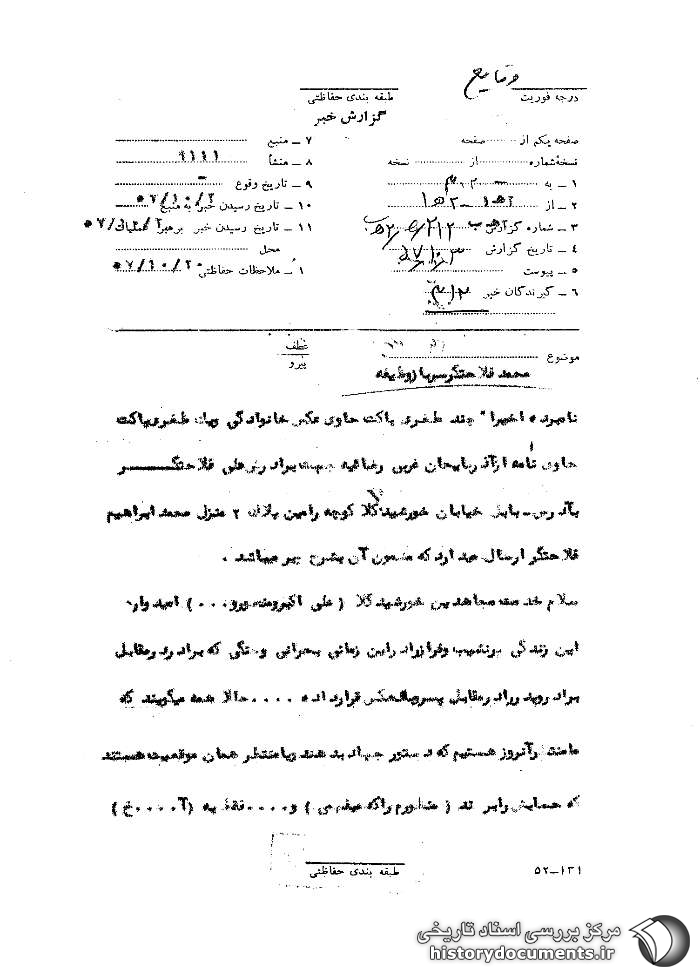 وقایع
درجه فوریت
طبقه بندی حفاظتی
گزارش خبر
صفحه یکم از صفحه
نسخه شماره از نسخه
۱ ـ به
۲ ـ از ۲ه۱ ـ ۲ه۱
۳ ـ شماره گزارش
۴ ـ تاریخ گزارش
۵ ـ پیوست
۶ ـ گیرندگان خبر
۷ ـ منبع
۸ ـ منشأ ۹۱۱۱
۹ ـ تاریخ وقوع ـ
۱۰ ـ تاریخ رسیدن خبر به منبع ۵۷/۱۰/۲
۱۱ ـ تاریخ رسیدن خبر برهبر عملیات
محل
ملاحظات حفاظتی ۵۷/۱۰/۲۰
عطف
پیرو
موضوع
محمد فلاحتگر سرباز وظیفه
نامبرده اخیرا" چند طغری پاکت حاوی عکس خانوادگی ویک طغری پاکت
حاوی نامه از آذربایجان غربی رضائیه جهت برادرش علی فلاحتگر
بآدرس ـ بابل خیابان خورشیدکلا کوچه رامین پلاک ۲ منزل محمد ابراهیم
فلاحتگر ارسال میدارد که مضمون آن بشرح زیر میباشد .
سلام خدمت مجاهدین خورشید کلا ( علی اکبرومنصورو۰۰۰ ) امیدوارم
این زندگی پرنشیب وفراز در این زمانی بحرانی و که برادر در مقابل
برادر و پدر در مقابل پسر قرار داده ۰۰۰۰ حالا همه میگویند که
ما منتظر آنروز هستیم که دستور جهاد بدهند ویا منتظر همان موقعیت هستند
که حمایش را ( منظورم را که میفهمی ) و۰۰۰۰ فقط به (آ۰۰۰۰خ )
طبقه بندی حفاظتی
۱۳۱ـ۵۲
مرکز بررسی اسناد تاریخی
historydocuments.ir